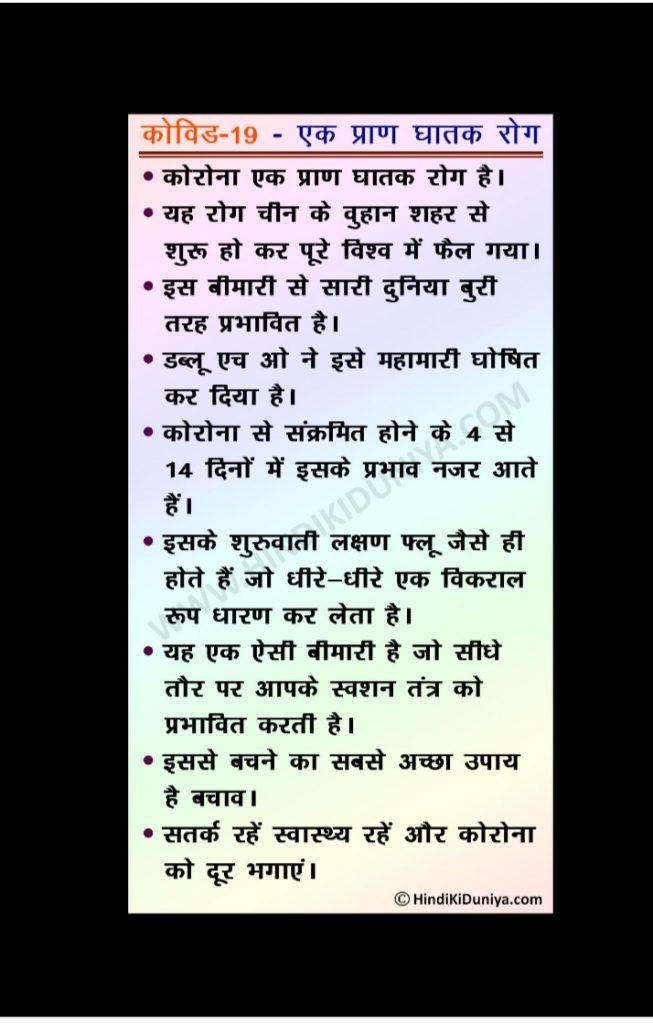 कोविड-19 - एक प्राण घातक रोग
• कोरोना एक प्राण घातक रोग है।
• यह रोग चीन के वुहान शहर से
शुरू हो कर पूरे विश्व में फैल गया।
• इस बीमारी से सारी दुनिया बुरी
तरह प्रभावित है।
• डब्लू एच ओ ने इसे महामारी घोषित
कर दिया है।
• कोरोना से संक्रमित होने के 4 से
14 दिनों में इसके प्रभाव नजर आते
हैं।
• इसके शुरुवाती लक्षण फ्लू जैसे ही
होते हैं जो धीरे-धीरे एक विकराल
रूप धारण कर लेता है।
• यह एक ऐसी बीमारी है जो सीधे
तौर पर आपके स्वशन तंत्र को
प्रभावित करती है।
• इससे बचने का सबसे अच्छा उपाय
है बचाव।
• सतर्क रहें स्वास्थ्य रहें और कोरोना
को दूर भगाएं।
© HindiKiDuniya.com
WWW.HINDIKIDUNIYA.COM